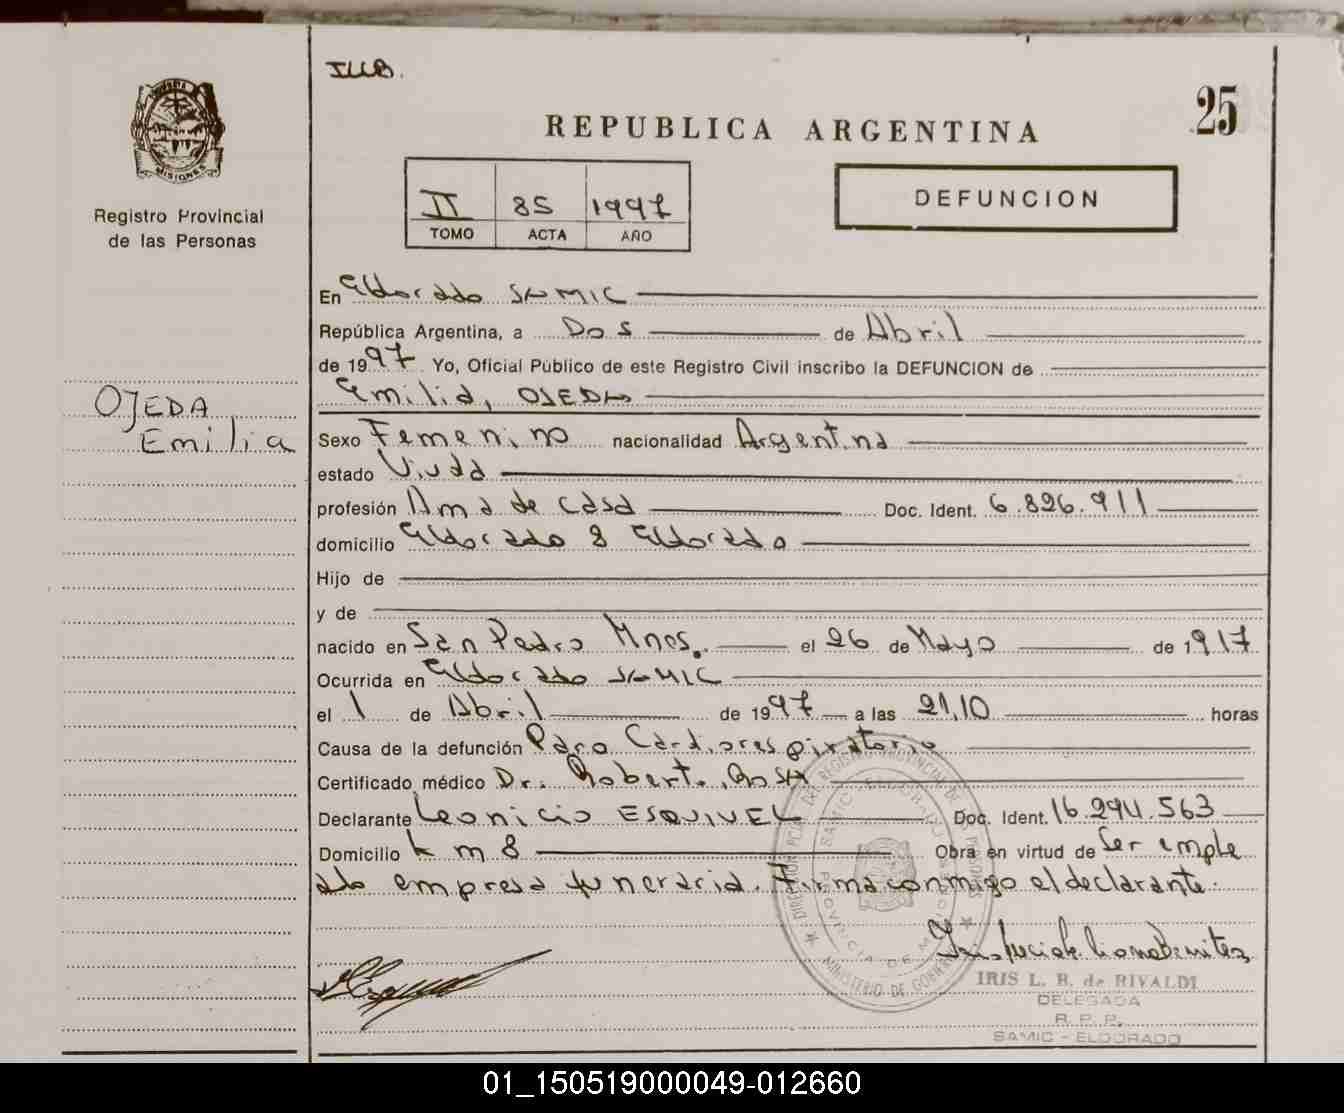 ILLB.
25
REPUBLICA ARGENTINA
MISIONES
Registro Provincial
de las Personas
II 85 1997
TOMO ACTA AÑO
DEFUNCION
En Eldorado SAMIC
República Argentina, a Dos de Abril
de 1997 Yo, Oficial Público de este Registro Civil inscribo la DEFUNCION de
Emilia, OJEDA
OJEDA
Emilia
Sexo Femenino nacionalidad Argentina
estado Viuda
profesión Ama de casa Doc. Ident. 6.826.911
domicilio Eldorado 8 Eldorado
Hijo de
y de
nacido en San Pedro Mnes. el 26 de Mayo de 1917
Ocurrida en Eldorado SAMIC
el 1 de Abril de 1997 a las 21,10 horas
Causa de la defunción Paro Cardiorespiratorio
Certificado médico Dr. Roberto Rosa
Declarante Leonicio ESQUIVEL Doc. Ident. 16.294.563
Domicilio km 8 Obra en virtud de Ser emple
ado empresa funeraria. Firma conmigo el declarante.
DIRECCION PCIAL. DEL REGISTRO PROVINCIAL DE LAS PERSONAS
SAMIC - ELDORADO
PROVINCIA DE MISIONES
MINISTERIO DE GOBIERNO
IRIS L. B. de RIVALDI
DELEGADA
R. P. P.
SAMIC - ELDORADO
01_150519000049-012660